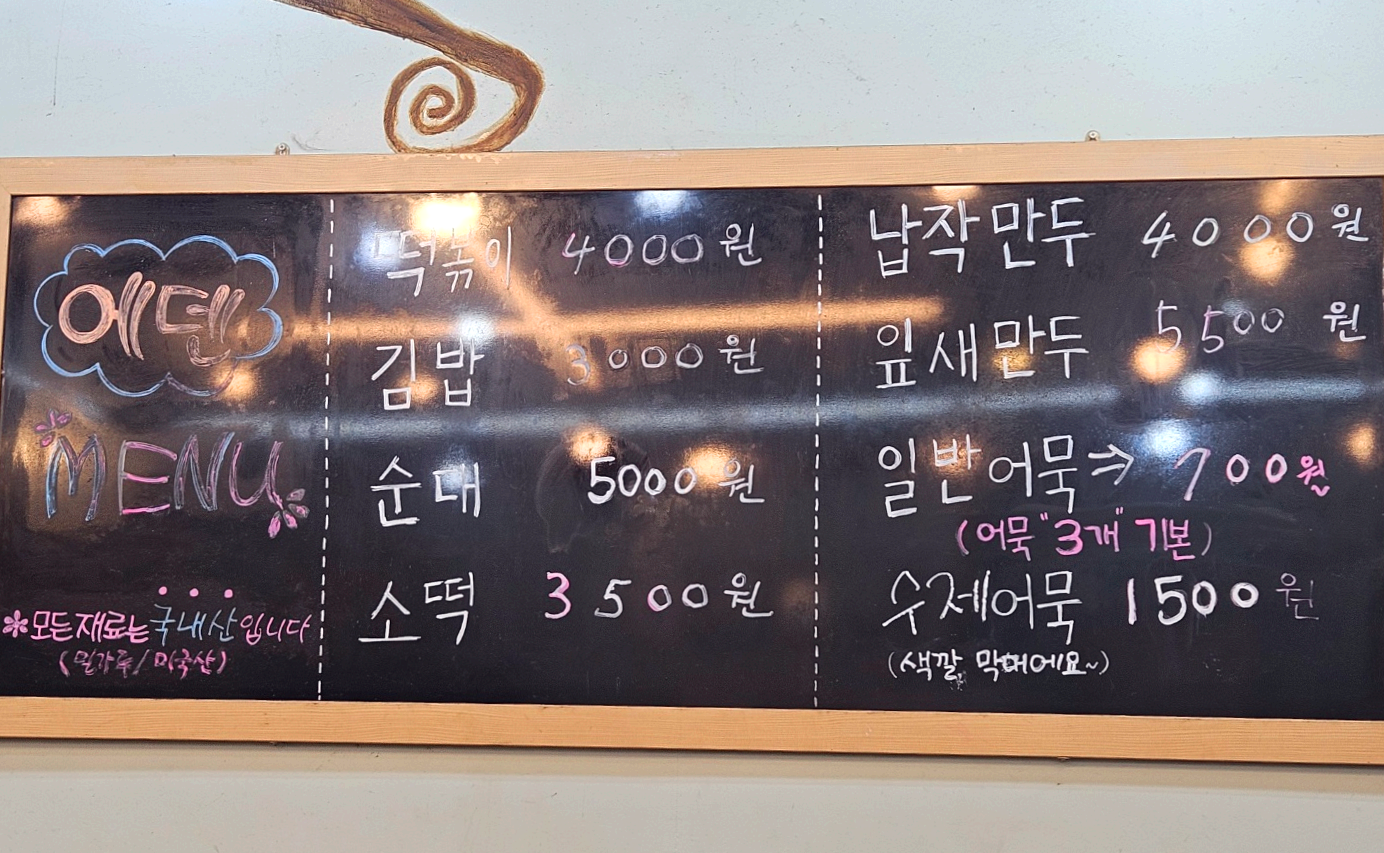 에덴
MENU
*모든재료는 국내산입니다
(밀가루/미국산)
떡볶이 4000원
김밥 3000원
순대 5000원
소떡 3500원
납작만두 4000원
잎새만두 5500원
일반어묵⇒ 700원
(어묵 "3개" 기본)
수제어묵 1500원
(색깔 막대에요~)